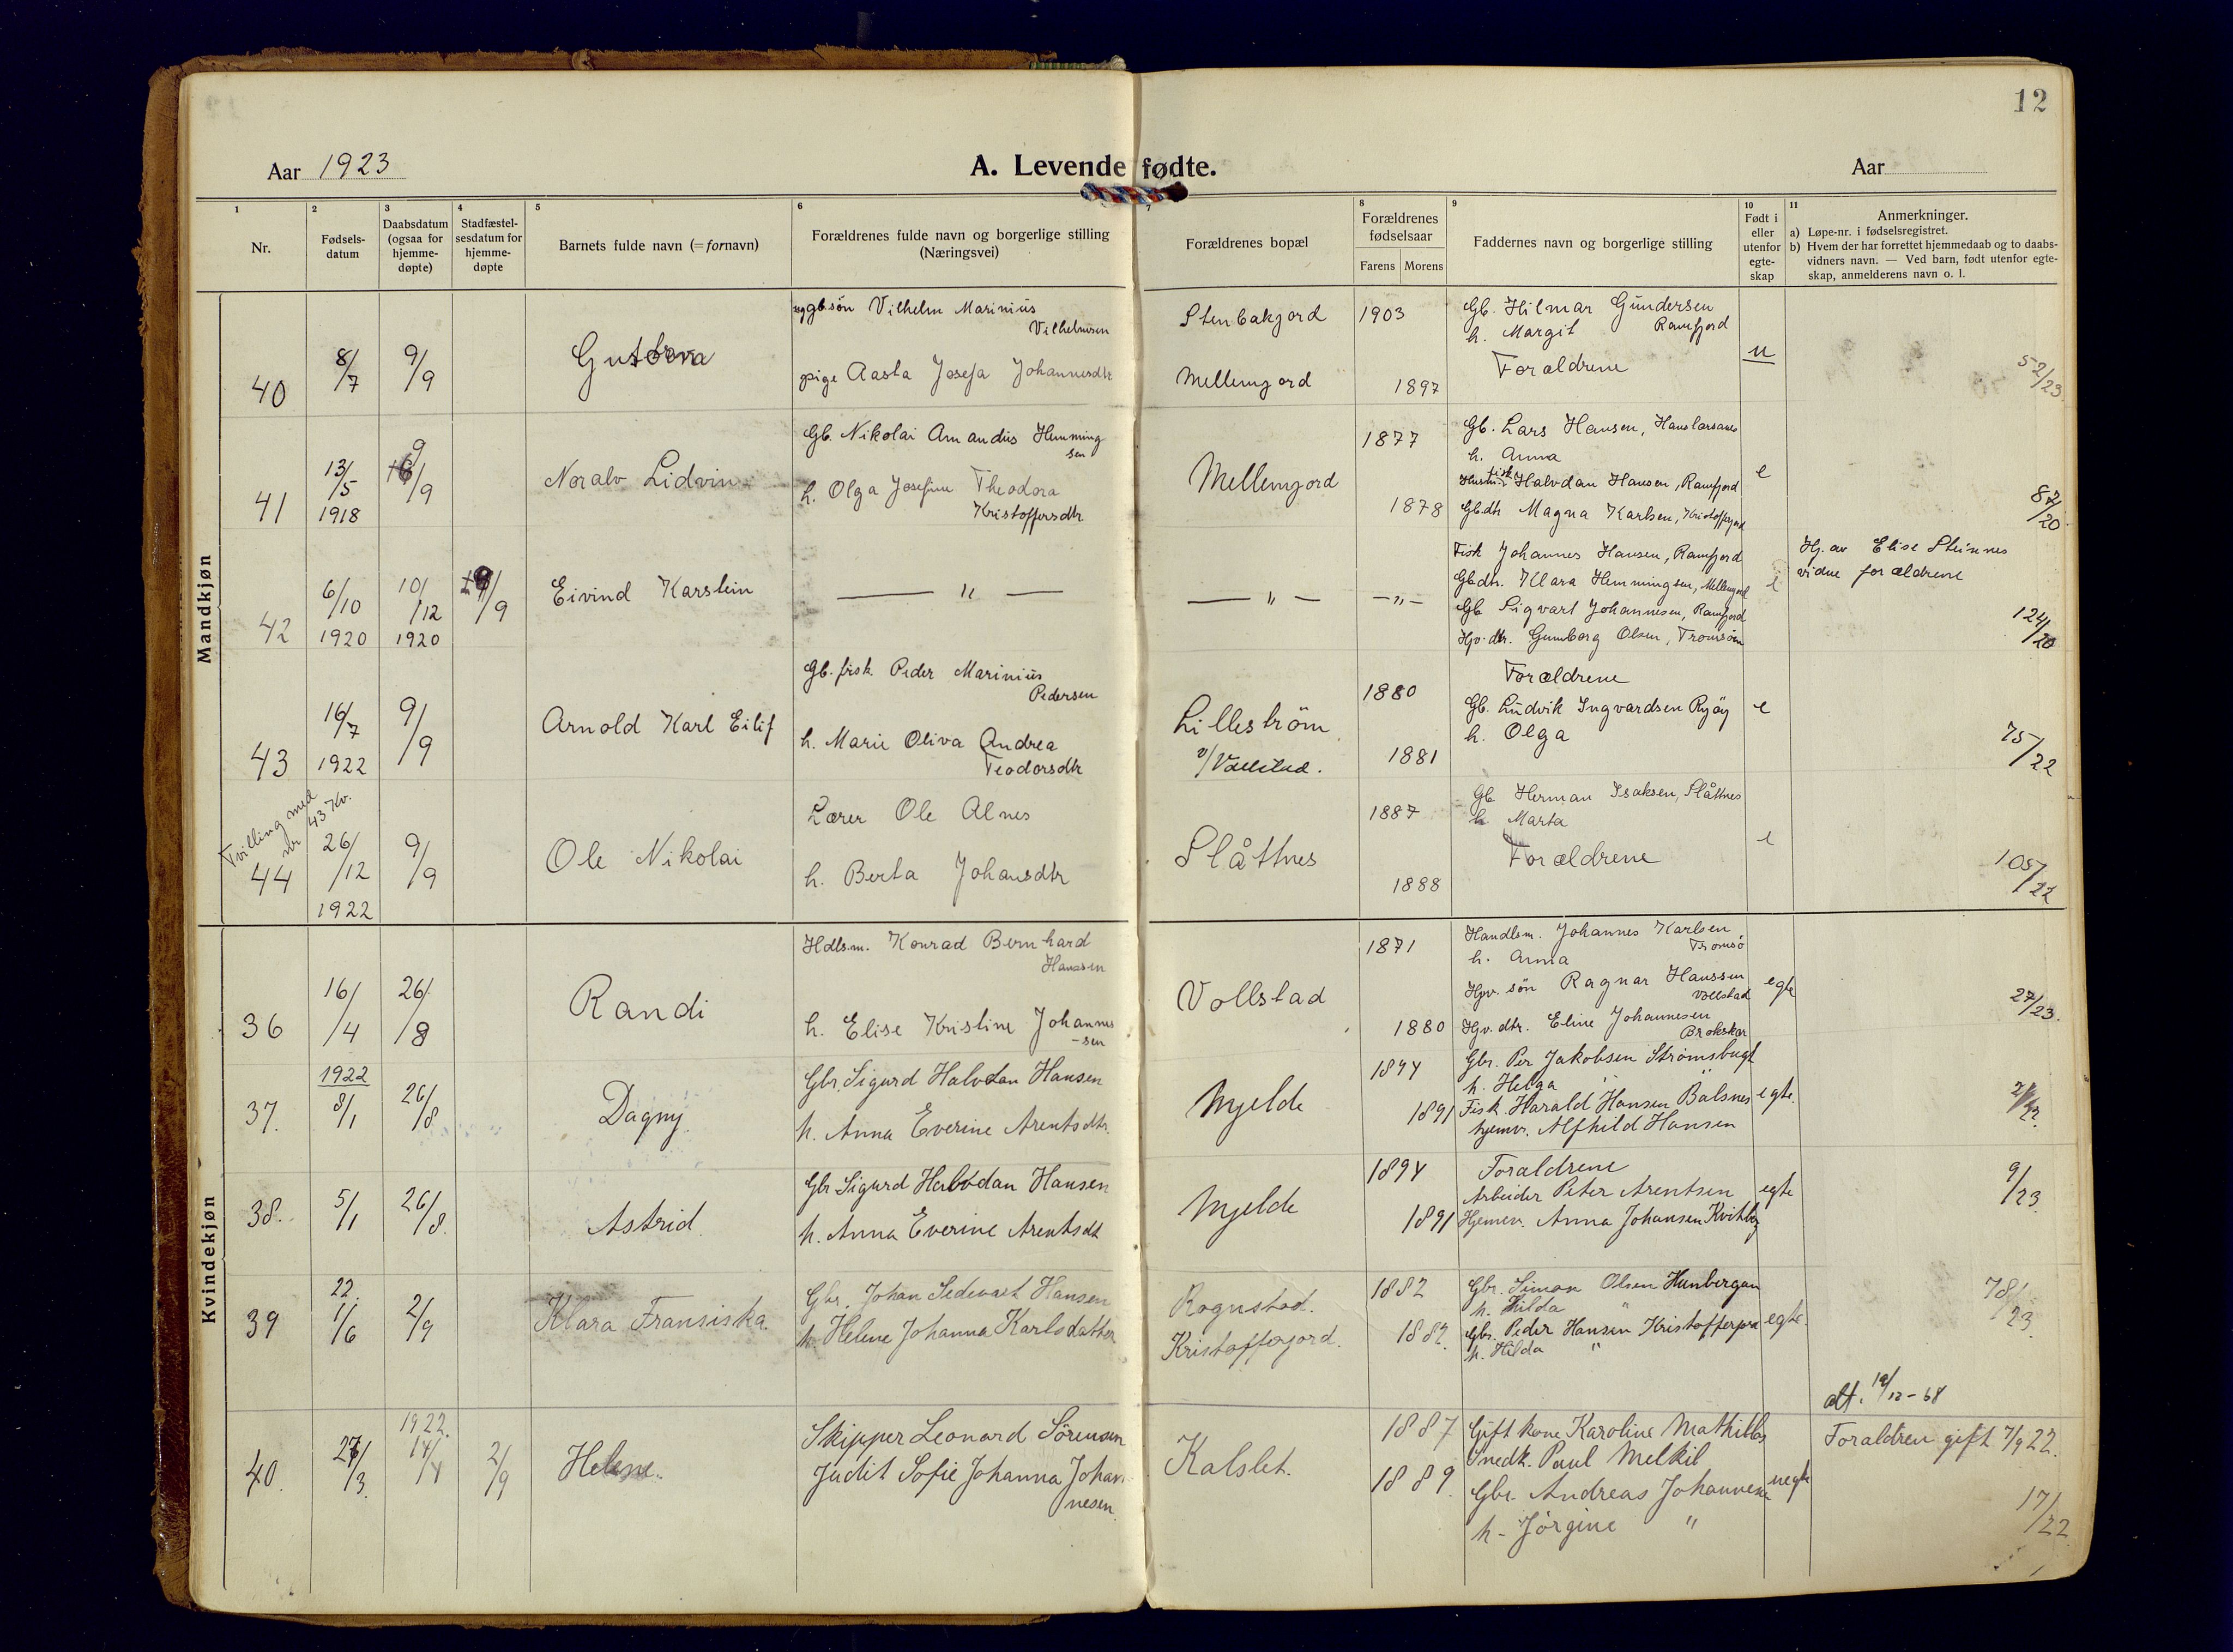 12
Aar 1923
A. Levende fødte.
Aar
1 2 3 4 5 6 7 8 9 10 11
Nr.
Fødsels-
datum
Daabsdatum
(ogsaa for
hjemme-
døpte)
Stadfæstel-
sesdatum for
hjemme-
døpte
Barnets fulde navn (= fornavn)
Forældrenes fulde navn og borgerlige stilling
(Næringsvei)
Forældrenes bopæl
Forældrenes
fødselsaar
Farens Morens
Faddernes navn og borgerlige stilling
Født i
eller
utenfor
egte-
skap
Anmerkninger.
a) Løpe-nr. i fødselsregistret.
b) Hvem der har forrettet hjemmedaab og to daabs-
vidners navn. — Ved barn, født utenfor egte-
skap, anmelderens navn o. l.
Mandkjøn
40
8/7
9/9
gbsön Vilhelm Marinius
Vilhelmsen
pige Aasta Josefa Johannesdtr
Stenbakjord
Mellemjord
1903
1897
Gb. Hilmar Gundersen
h. Margit Ramfjord
Forældrene
u
52/23
41
13/5
1918
9/9
Noralv Lidvin
Gb. Nikolai Amandus Hemming
sen
h. Olga Josefine Theodora
Kristoffersdtr
Mellemjord
1877
1878
Gb. Lars Hansen,
h. Anna
Halvdan Hansen, Ramfjord
Gbdtr Magna Karlsen,
e
82/20
42
6/10
1920
10/12
1920
9/9
Eivind Karstein
— " —
— " —
— " —
Fisk Johannes Hansen, Ramfjord
Gbdtr. Klara Hemmingsen, Mellemjord
Gb Sigvart Johannesen, Ramfjord
Hjv. dtr. Gunborg Olsen, Tromsöen
e
Hj. av Elise Steinnes
vidne forældrene
124/20
43
16/7
1922
9/9
Arnold Karl Eilif
Gb. fisk. Peder Marinius
Pedersen
h. Marie Oliva Andrea
Teodorsdtr
Lilleström
v/Vollstad.
1880
1881
Forældrene
Gb. Ludvik Ingvardsen Ryöy
h. Olga
e
75/22
Tvilling med
nr 43 Kv.
44
26/12
1922
9/9
Ole Nikolai
Lærer Ole Alnes
h. Berta Johansdtr
Slåttnes
1887
1888
Gb Herman Isaksen, Slåttnes
h. Marta
Forældrene
e
105/22
Kvindekjøn
36
16/4
26/8
Randi
Hdlsm. Konrad Bernhard
Hanssen
h. Elise Kristine Johannes
-sen
Vollstad
1871
1880
Handlsm. Johannes Karlsen
Tromsö
h. Anna
Hjv. sön Ragnar Hanssen
Vollstad
Hjv. dtr. Eline Johannesen
Brokskar
egte
27/23.
37.
1922
8/1
26/8
Dagny.
Gbr. Sigurd Halvdan Hansen
h. Anna Everine Arentsdtr.
Mjelde
1894
1891
Gbr. Per Jakobsen Strömsbugt
h. Helga "
Fisk. Harald Hansen Balsnes
hjemv. Alfhild Hansen
egte.
38.
5/1
26/8.
Astrid.
Gbr Sigurd Halvdan Hansen
h. Anna Everine Arentsdt
Mjelde
1894
1891
Forældrene
Arbeider Peter Arentsen
Hjemv. Anna Johansen
egte
9/23.
39
22.
1/6
2/9
Klara Fransiska.
Gbr. Johan Sedevart Hansen
h. Helene Johanna Karlsdatter
Rognstad.
Kristofferjord.
1882
1882.
Gbr. Simon Olsen
h. Hilda "
Gbr. Peder Hansen
h. Hilda "
egte.
78/23.
40.
27/3.
1922.
14/4
2/9
Helene.
Skipper Leonard Sörensen
Judit Sofie Johanna Johan
nesen.
Kalslet.
1887
1889.
Gift kone Karoline Mathillas
Snedk. Paul Melkil
Gbr. Andreas Johannesen
h- Jörgine "
uegte
att. 19/12-68
Forældren gift 7/9 22.
17/22